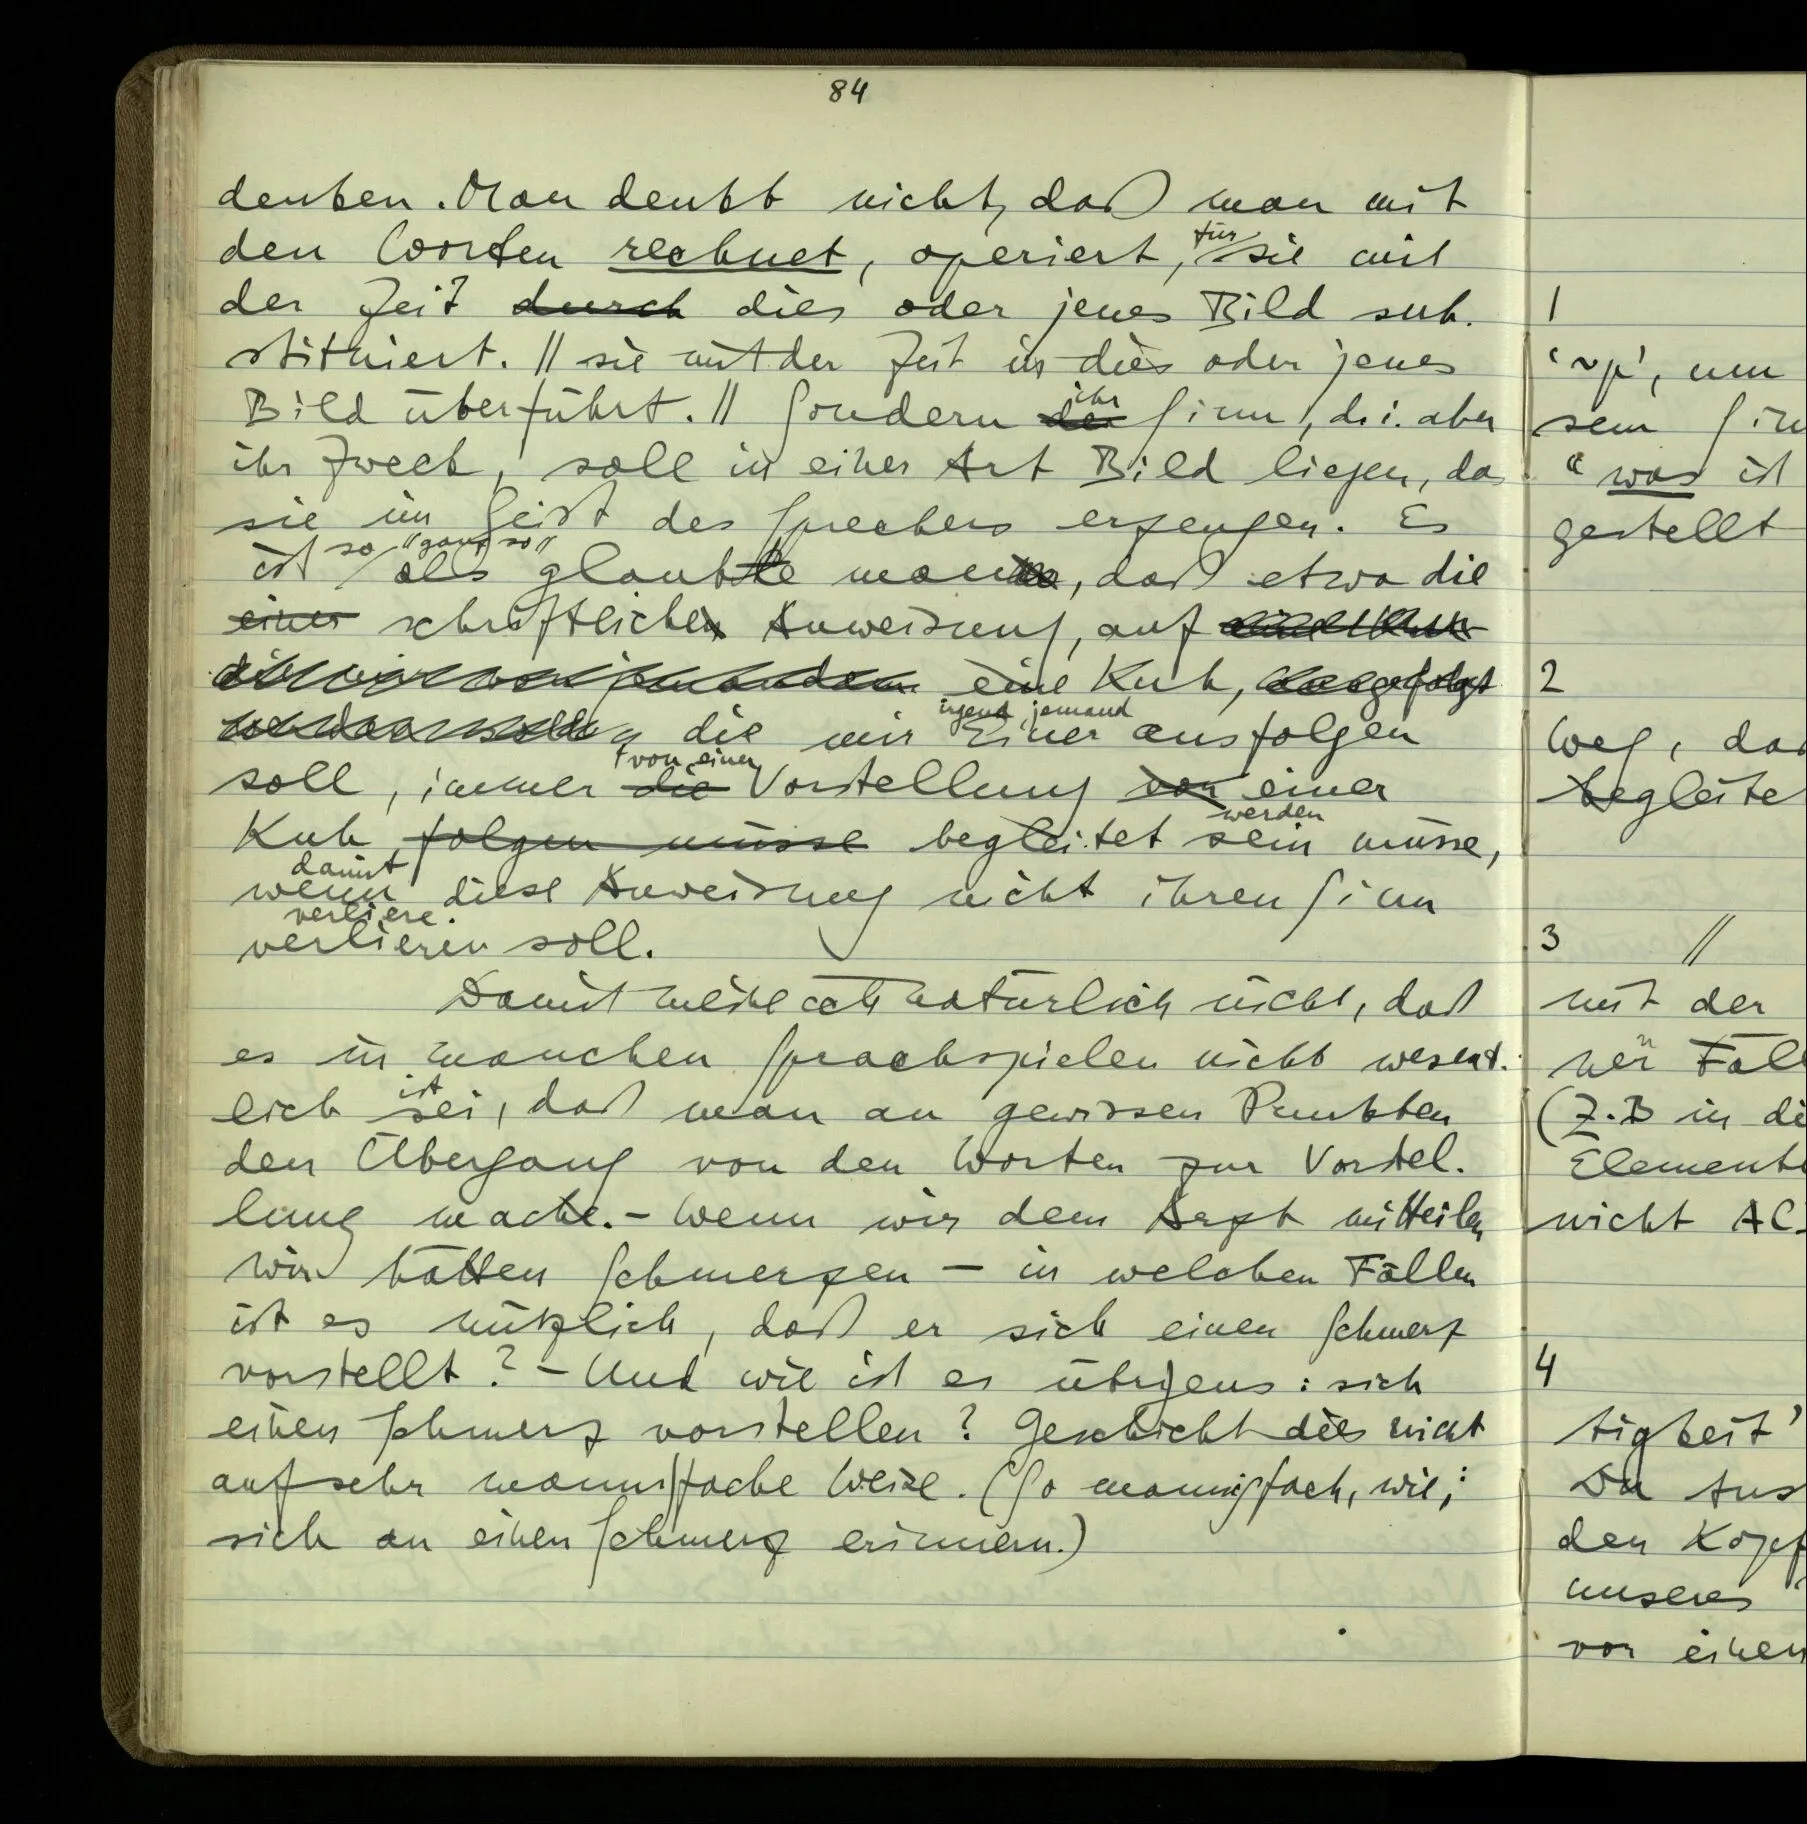 84
denken. Man denkt nicht, daß man mit
den Worten rechnet, operiert, für sie mit
der Zeit durch dies oder jenes Bild sub-
stituiert. // sie mit der Zeit in dies oder jenes
Bild überführt. // Sondern der ihr Sinn, d.i. aber
ihr Zweck, soll in einer Art Bild liegen, das
sie im Geist des Sprechers erzeugen. Es
ist so // ganz so // als glaubte man, daß etwa die
einer schriftlichen Anweisung, auf
eine Kuh,
die mir Einer irgend jemand ausfolgen
soll, immer die von einer Vorstellung von einer
Kuh folgen müsse begleitet sein werden müsse,
wenn damit diese Anweisung nicht ihren Sinn
verlieren soll. verliere.
Damit meine ich natürlich nicht, daß
es in manchen Sprachspielen nicht wesent-
lich sei ist, daß man an gewissen Punkten
den Übergang von den Worten zur Vorstel-
lung mache. – Wenn wir dem Arzt mitteilen
wir hätten Schmerzen – in welchen Fällen
ist es nützlich, daß er sich einen Schmerz
vorstellt? – Und wie ist es übrigens: sich
einen Schmerz vorstellen? Geschieht dies nicht
auf sehr mannigfache Weise. (So mannigfach, wie:
sich an einen Schmerz erinnern.)
1
'~p', um
sem
"was ist
gestellt
2
Weg, das
begleite
3 //
mit der
ner Fäll
(Z.B in di
Elemente
nicht AC
4
tigkeit'
Du Aus
den Kopf
unseres
vor einen